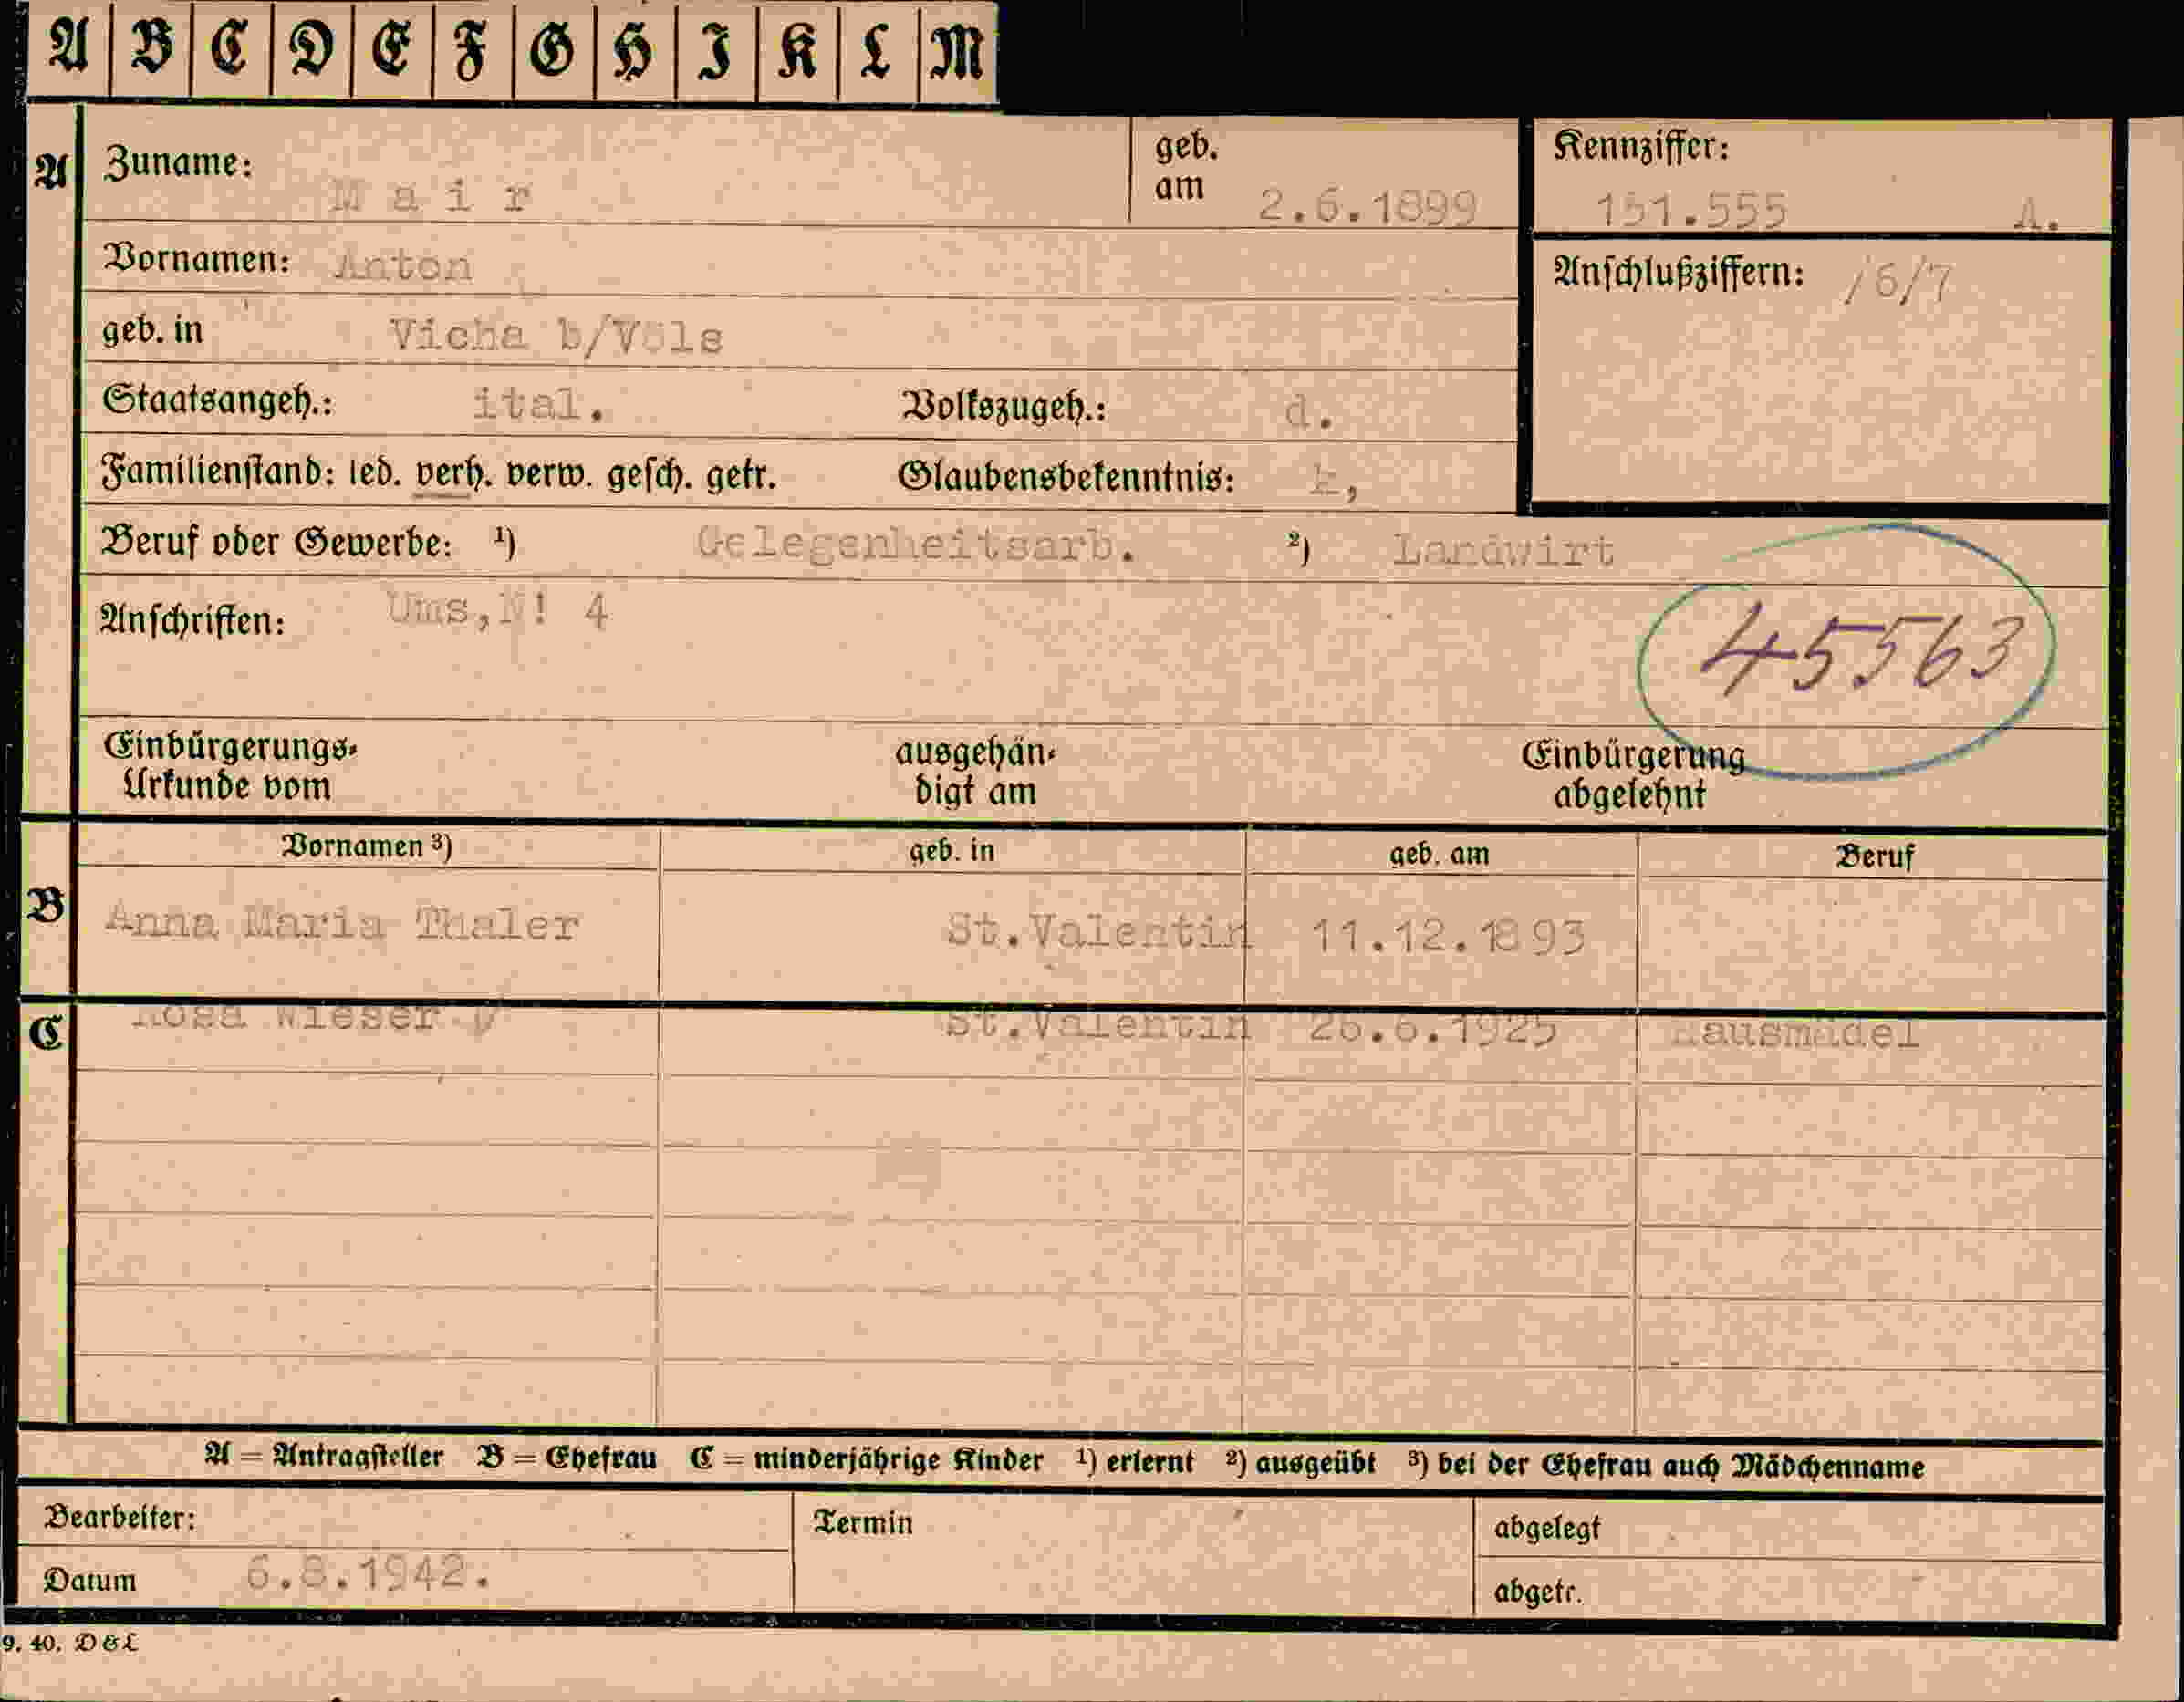 A B C D E F G H I K L M
A Zuname: Mair geb. am 2.6.1899 Kennziffer: 151.555 A.
Vornamen: Anton Anschlußziffern: /6/7
geb. in Vicha b/Völs
Staatsangeh.: ital. Volkszugeh.: d.
Familienstand: led. verh. verw. gesch. getr. Glaubensbekenntnis: k,
Beruf oder Gewerbe: ¹) Gelegenheitsarb. ²) Landwirt
Anschriften: Ums,N! 4
45563
Einbürgerungs- Urkunde vom ausgehän- digt am Einbürgerung abgelehnt
Vornamen ³) geb. in geb. am Beruf
B Anna Maria Thaler St.Valentin 11.12.1893
C Rosa Wieser St.Valentin 26.6.1925 Hausmädel
A = Antragsteller B = Ehefrau C = minderjährige Kinder ¹) erlernt ²) ausgeübt ³) bei der Ehefrau auch Mädchenname
Bearbeiter: Termin abgelegt
Datum 6.8.1942. abgetr.
9. 40. D & L